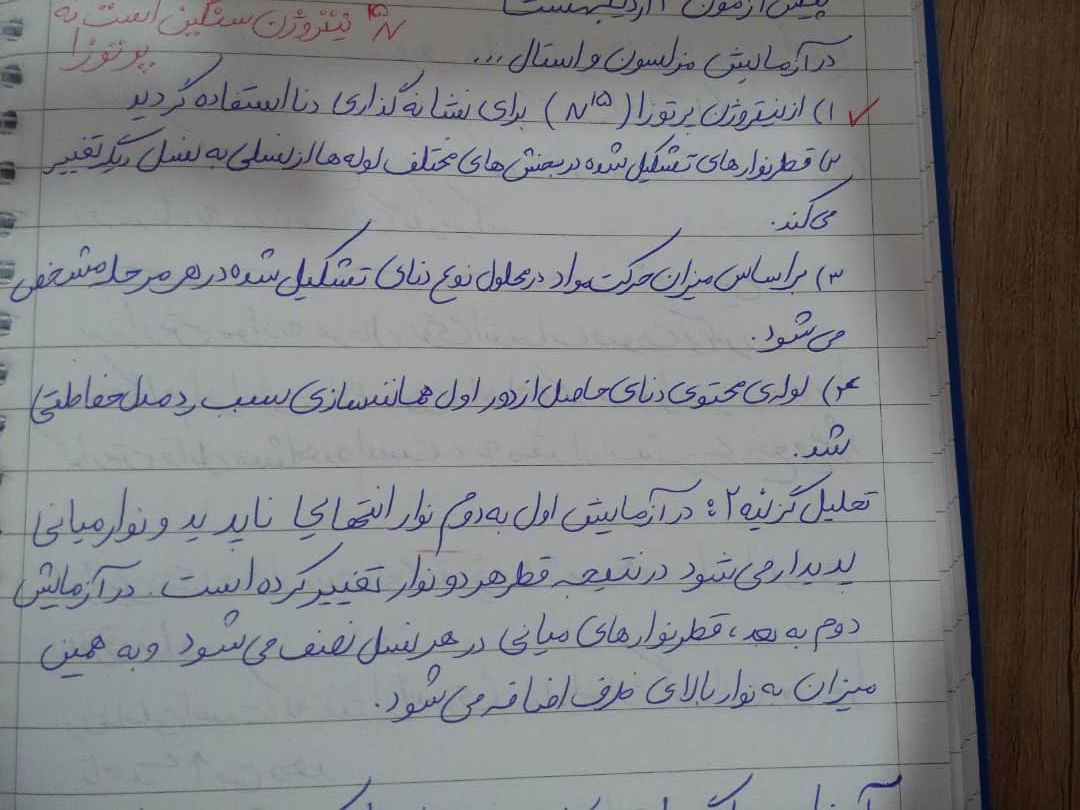 پیش آزمون ۱ اردیبهشت
N¹⁵ نیتروژن سنگین است نه
پرتوزا
در آزمایش مزلسون و استال ...
۱) از نیتروژن پرتوزا (N¹⁵) برای نشانه گذاری دنا استفاده کردید
۲) قطر نوارهای تشکیل شده در بخش های مختلف لوله ها از نسلی به نسل دیگر تغییر
می کند.
۳) بر اساس میزان حرکت مواد در محلول نوع دنای تشکیل شده در هر مرحله مشخص
می شود.
۴) لوله ی محتوی دنای حاصل از دور اول همانندسازی سبب رد مدل حفاظتی
شد.
تحلیل گزینه ۲: در آزمایش اول به دوم نوار انتهایی ناپدید و نوار میانی
پدیدار می شود در نتیجه قطر هر دو نوار تغییر کرده است. در آزمایش
دوم به بعد، قطر نوارهای میانی در هر نسل نصف می شود و به همین
میزان به نوار بالای ظرف اضافه می شود.